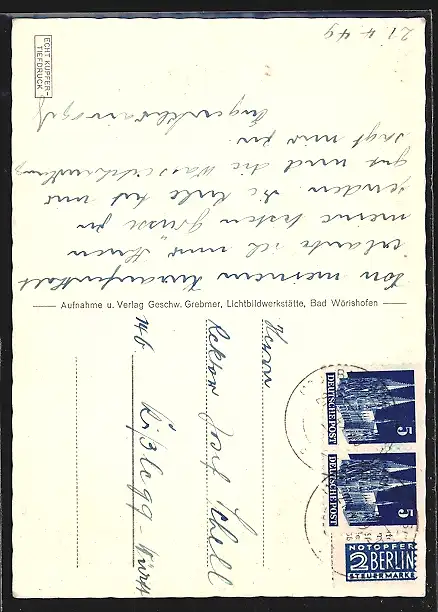 21.4.49
Von meinem Kuraufenthalt
erlaube ich mir, Ihnen
meine besten Grüsse zu
senden. Die Kur tut mir
gut und die Wasserbehandlung
sagt mir zu.
ECHT KUPFER-
TIEFDRUCK
Aufnahme u. Verlag Geschw. Grebmer, Lichtbildwerkstätte, Bad Wörishofen
Herrn
Rektor Josef Schell
14b Kißlegg-Württ
5
DEUTSCHE POST
5
DEUTSCHE POST
NOTOPFER
2 BERLIN
STEUERMARKE